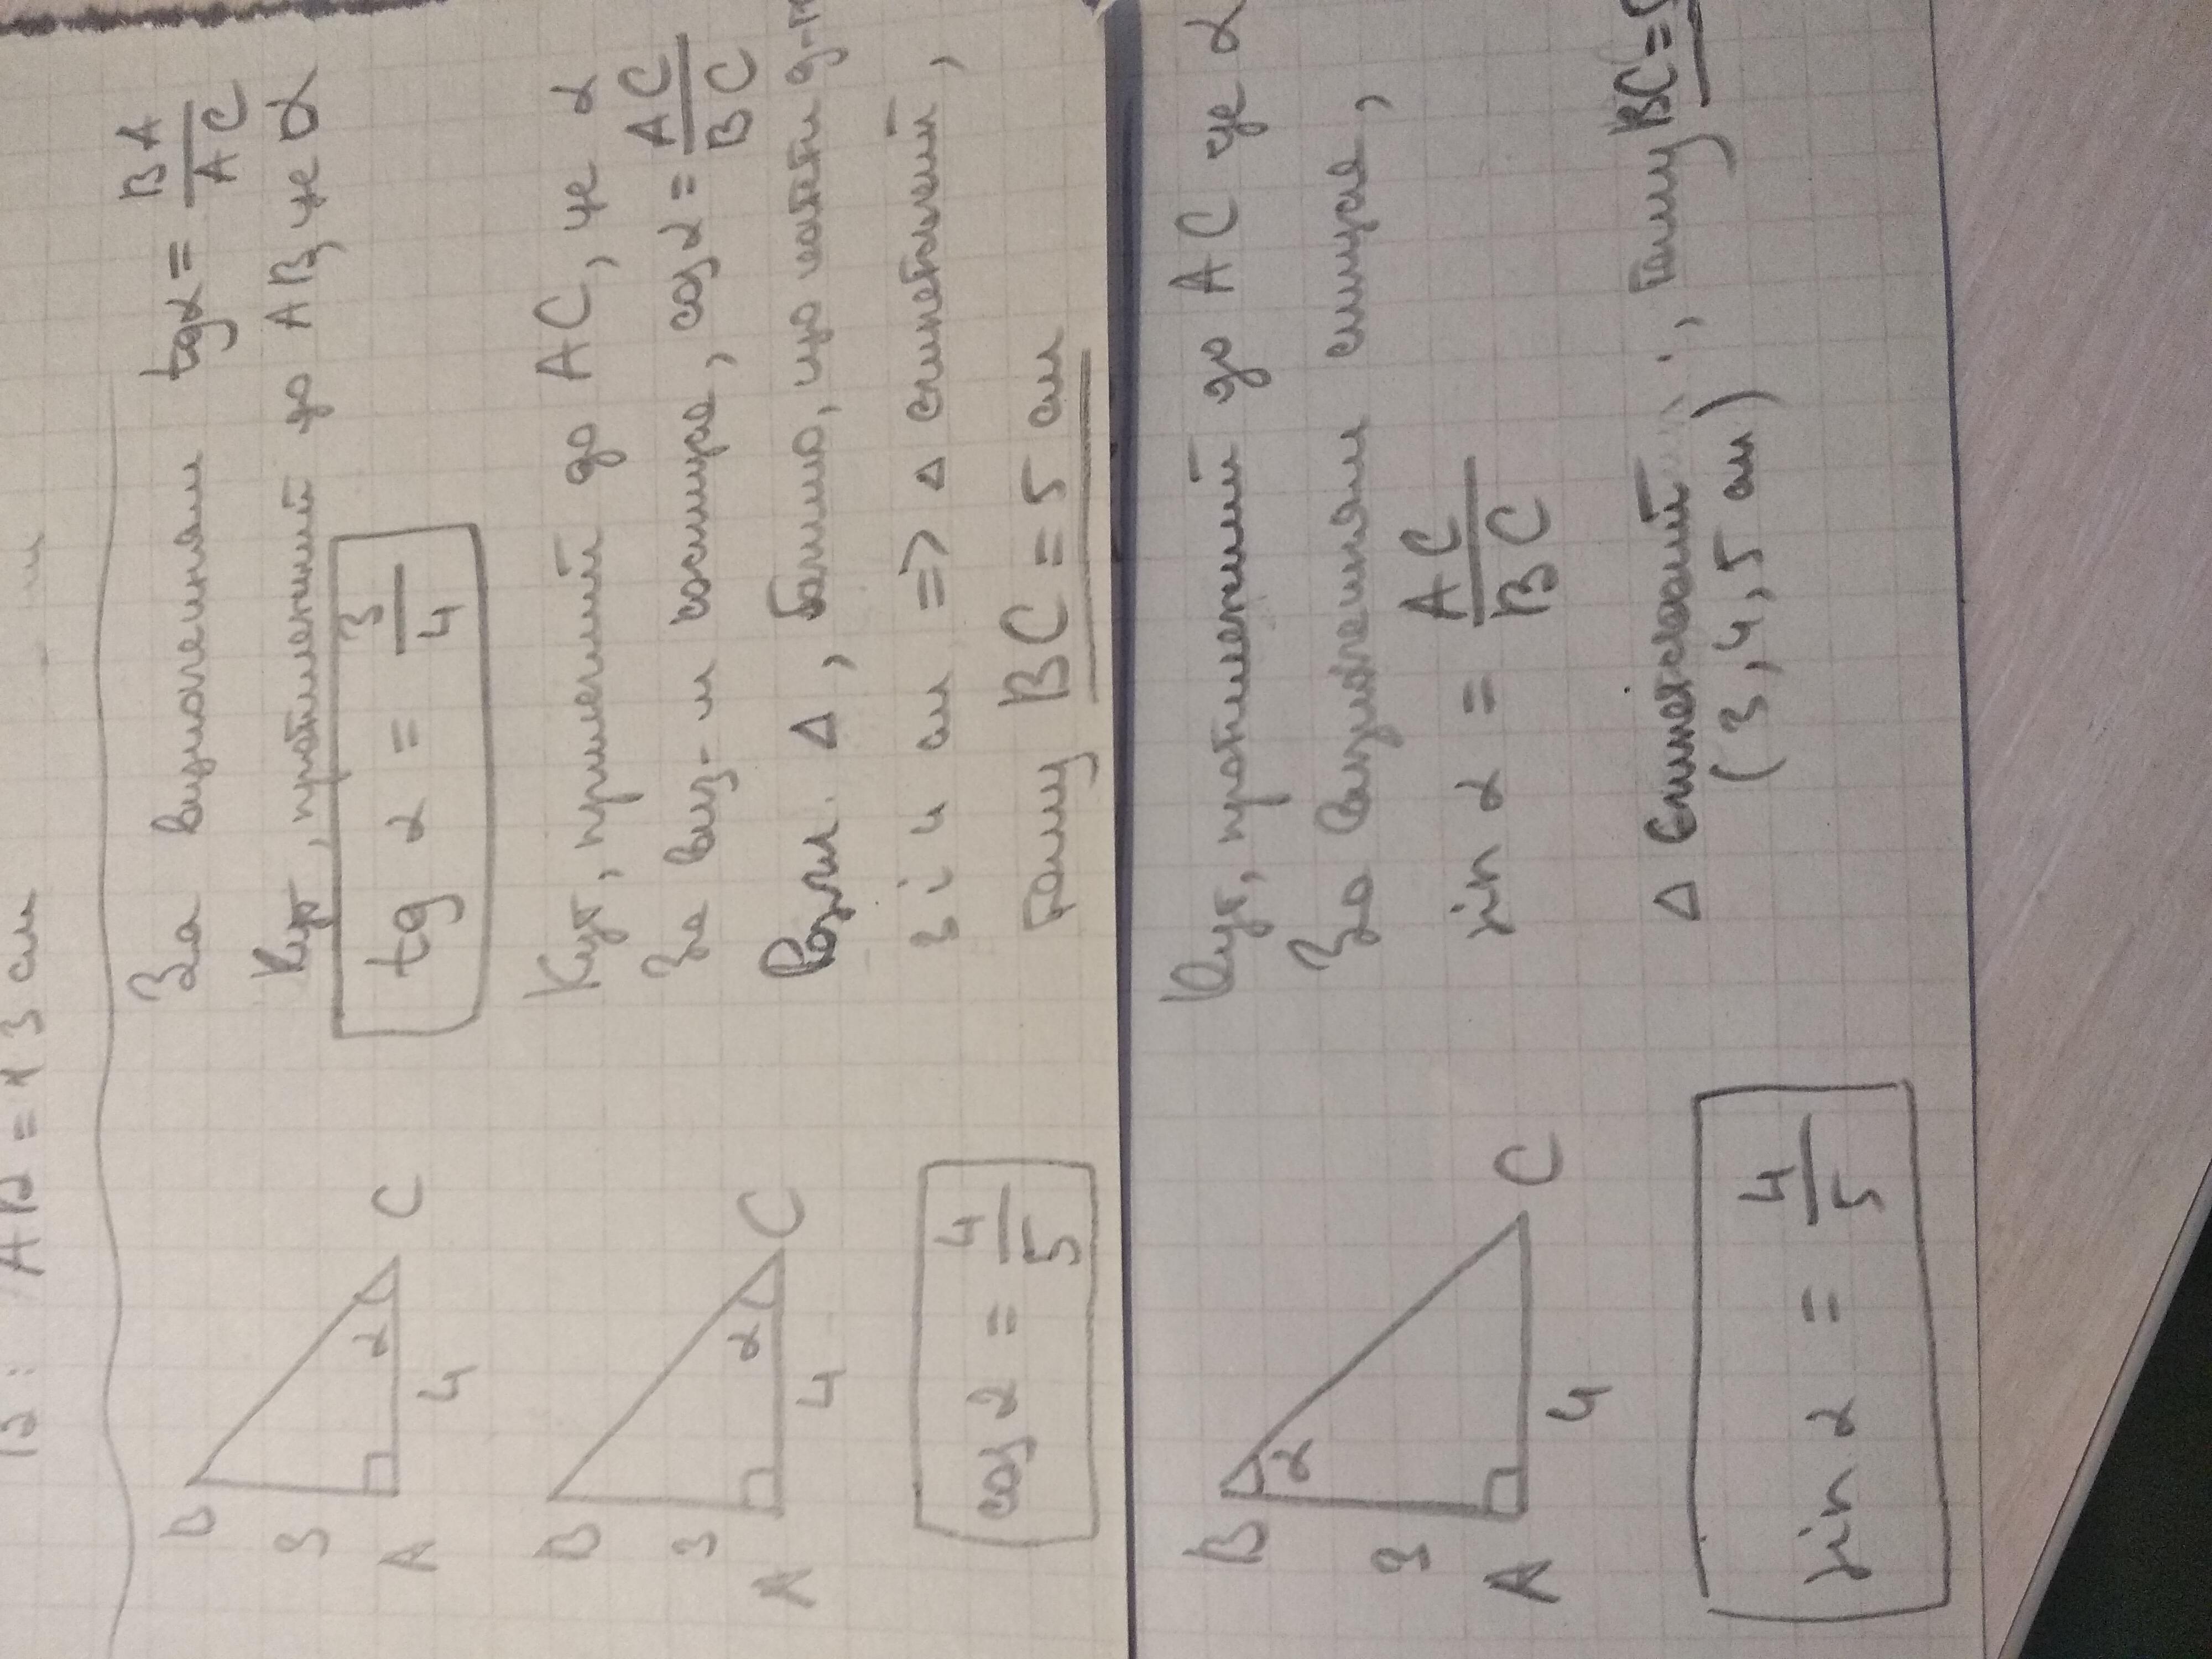 В: AB = 13 см
За визначенням tgα = BA/AC
Кут, протилежний до AB, це α
tg α = 3/4
B
3
A
4
α
C
Кут, прилеглий до AC, це α
За виз-м косинуса, cos α = AC/BC
Розгл. Δ, бачимо, що катети д-ть
3 і 4 см => Δ єгипетський,
тому BC = 5 см
B
3
A
4
α
C
cos α = 4/5
Кут, протилежний до AC це α
За визначенням синуса,
sin α = AC/BC
Δ Єгипетський, тому BC=5
(3, 4, 5 см)
B
α
3
A
4
C
sin α = 4/5